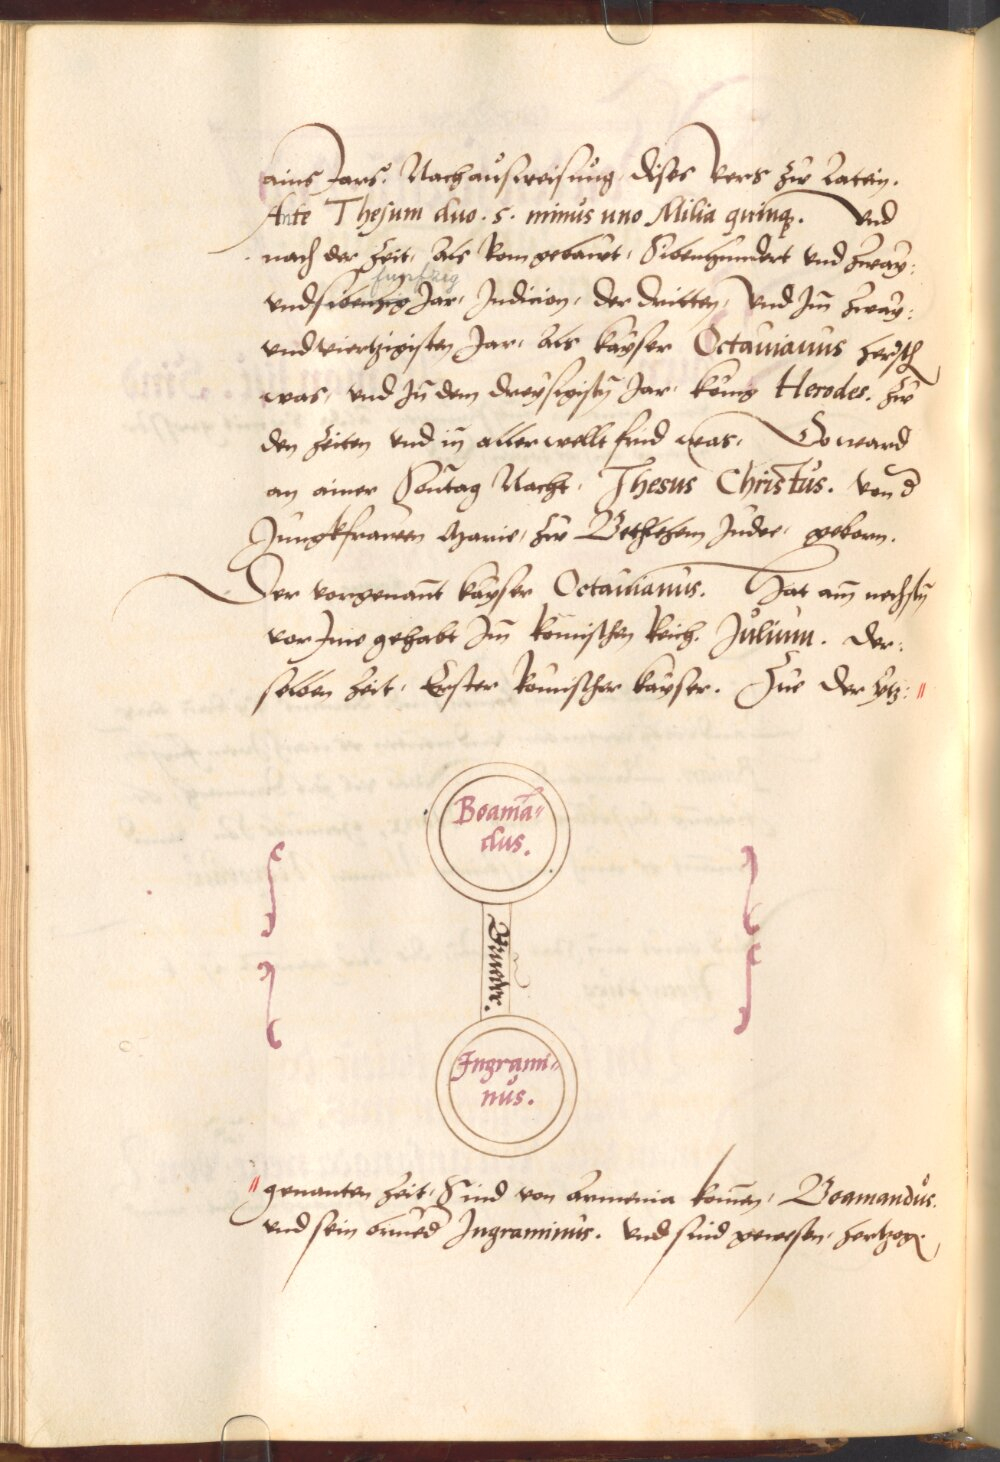 ains Jars. Nach ausweisung, dises vers zw Latein.
Ante Jhesum duo. s. minus uno Milia quinq. Vnd
nach der Zeit, als Rom gebawt, Sibenhundert vnd zway:
funfzig
vnd sibentzig Jar, Indicion, der dritten, vnd Im̄ zway:
vnd viertzigisten Jar, als kayser Octauianus
was, vnd Jn̄ dem dreysigistn̄ Jar, kunig Herodes. zw
den Zeiten vnd in̄ aller wellt frid was, So ward
an ainer Son̄tag Nacht, Jhesus Christus. von d
Jungkfrawen Marie, zw Bethlehem Judee, geborn.
Der vorgenan̄t kayser Octauianus. Hat am̄ nechstn̄
vor Jme gehabt Jm̄ Römischen Reich. Julium. der:
selben Zeit, Erster Römischer kayser. Zue der ytz: //
Beamā//
dus.
Brueder.
Ingrami//
nus.
// genanten Zeit, Sind von Armenia kom̄en, Boamandus.
vnd sein brued Ingraminus. vnd sind gewesen, hertzog